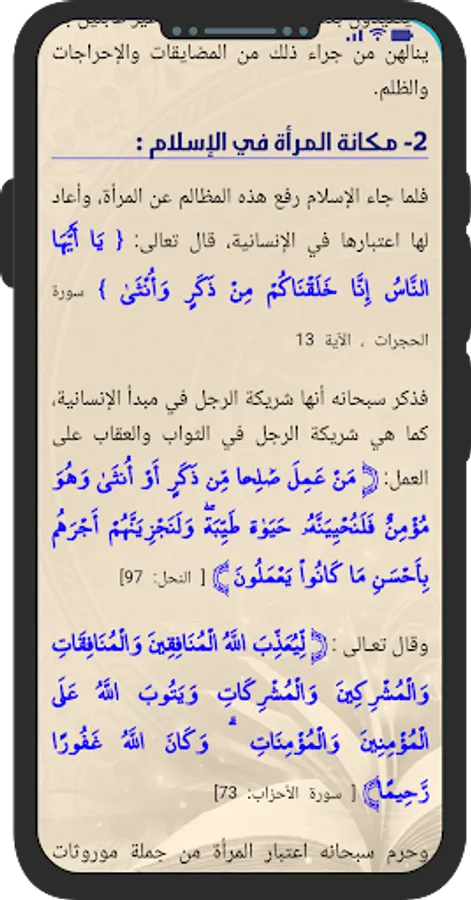 ينالهن من جراء ذلك من المضايقات والإحراجات
والظلم.
2- مكانة المرأة في الإسلام :
فلما جاء الإسلام رفع هذه المظالم عن المرأة، وأعاد
لها اعتبارها في الإنسانية، قال تعالى: { يَا أَيُّهَا
النَّاسُ إِنَّا خَلَقْنَاكُمْ مِنْ ذَكَرٍ وَأُنْثَىٰ } سورة
الحجرات ، الآية 13
فذكر سبحانه أنها شريكة الرجل في مبدأ الإنسانية،
كما هي شريكة الرجل في الثواب والعقاب على
العمل: ﴿ مَنْ عَمِلَ صَٰلِحا مِّن ذَكَرٍ أَوْ أُنثَىٰ وَهُوَ
مُؤْمِنٌ فَلَنُحْيِيَنَّهُۥ حَيَوٰة طَيِّبَةۖ وَلَنَجْزِيَنَّهُمْ أَجْرَهُم
بِأَحْسَنِ مَا كَانُواْ يَعْمَلُونَ ﴾ [ النحل: 97]
وقال تعالى : ﴿ لِّيُعَذِّبَ اللَّهُ الْمُنَافِقِينَ وَالْمُنَافِقَاتِ
وَالْمُشْرِكِينَ وَالْمُشْرِكَاتِ وَيَتُوبَ اللَّهُ عَلَى
الْمُؤْمِنِينَ وَالْمُؤْمِنَاتِ ۗ وَكَانَ اللَّهُ غَفُورًا
رَّحِيمًا﴾ [ سورة الأحزاب: 73]
وحرم سبحانه اعتبار المرأة من جملة موروثات